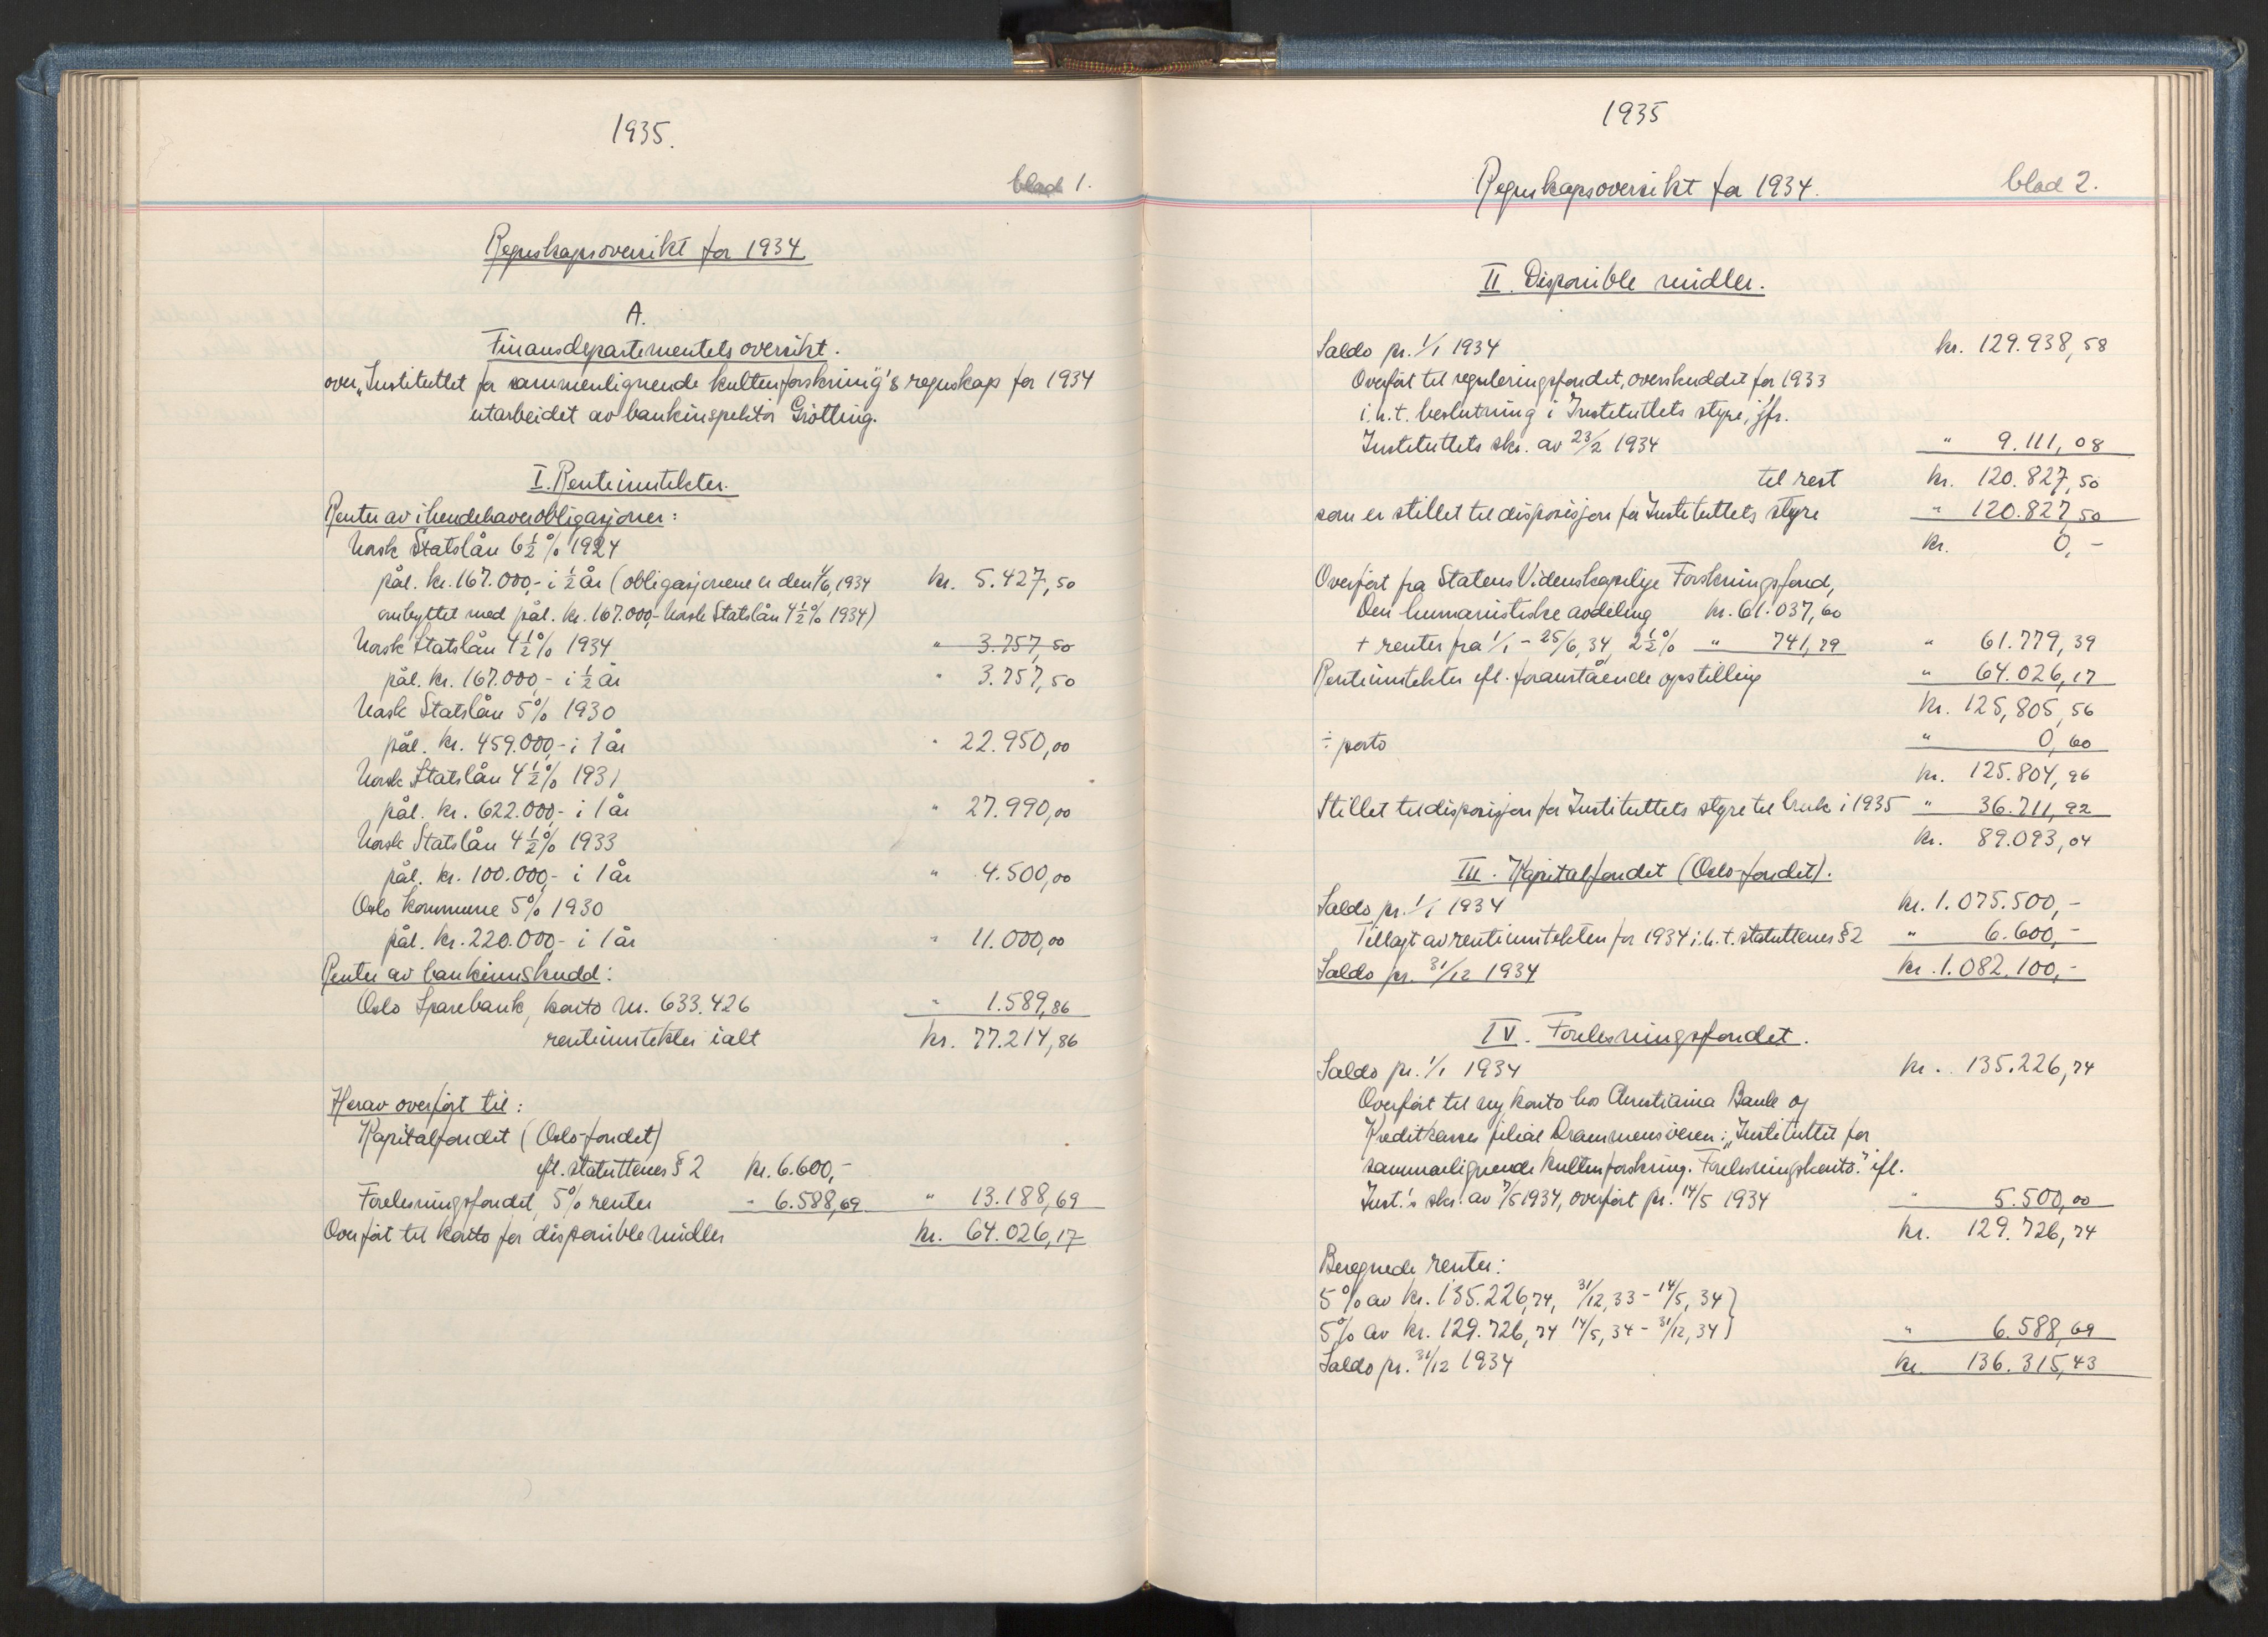 1935.
blad 1.
Regnskapsoversikt for 1934.
A.
Finansdepartementets oversikt.
over „Instituttet for sammenlignende kulturforskning"s regnskap for 1934
utarbeidet av bankinspektør Grötting.
I. Renteinntekter.
Renter av ihendehaverobligasjoner:
Norsk Statslån 6½% 1924
pål. kr. 167.000,- i ½ år (obligasjonene er den 1/6, 1934 kr. 5.427,50
ombyttet med pål. kr. 167.000,- Norsk Statslån 4½% 1934)
Norsk Statslån 4½% 1934 " 3.757,50
pål. kr. 167.000,- i ½ år " 3.757,50
Norsk Statslån 5% 1930
pål. kr. 459.000,- i 1 år " 22.950,00
Norsk Statslån 4½% 1931
pål. kr. 622.000,- i 1 år " 27.990,00
Norsk Statslån 4½% 1933
pål. kr. 100.000,- i 1 år " 4.500,00
Oslo kommune 5% 1930
pål. kr. 220.000,- i 1 år " 11.000,00
Renter av bankinnskudd:
Oslo Sparebank, konto nr. 633.426 " 1.589,86
renteinntekter ialt kr. 77.214,86
Herav overført til:
Kapitalfondet (Oslo-fondet)
efl. statuttenes § 2 kr. 6.600,-
Forelesningsfondet, 5% renter " 6.588,69 " 13.188,69
Overført til konto for disponible midler kr. 64.026,17
1935
Regnskapsoversikt for 1934.
blad 2.
II. Disponible midler.
Saldo pr. 1/1 1934 kr. 129.938,58
Overført til reguleringsfondet, overskuddet for 1933
i.h.t. beslutning i Instituttets styre, jfr.
Instituttets skr. av 23/2 1934 " 9.111,08
til rest kr. 120.827,50
som er stillet til disposisjon for Instituttets styre " 120.827,50
kr. 0,-
Overført fra Statens Videnskapelige Forskningsfond,
Den humanistiske avdeling kr. 61.037,60
+ renter fra 1/1 - 25/6, 34, 2½% " 741,79 " 61.779,39
Renteinntekter efl. foranstående opstilling " 64.026,17
kr. 125,805,56
÷ porto " 0,60
kr. 125.804,96
Stillet til disposisjon for Instituttets styre til bruk i 1935 " 36.711,92
kr. 89.093,04
III. Kapitalfondet (Oslo-fondet).
Saldo pr. 1/1 1934 kr. 1.075.500,-
Tillagt av renteinntekten for 1934 i.h.t. statuttenes § 2 " 6.600,-
Saldo pr. 31/12 1934 kr. 1.082.100,-
IV. Forelesningsfondet.
Saldo pr. 1/1 1934 kr. 135.226,74
Overført til ny konto hos Christiania Bank og
Kreditkasses filial Drammensveien: „Instituttet for
sammenlignende kulturforskning. Forelesningskonto." efl.
Inst.'s skr. av 7/5 1934, overført pr. 14/5 1934 " 5.500,00
kr. 129.726,74
Beregnede renter:
5% av kr. 135.226,74, 31/12, 33 - 14/5, 34 }
5% av kr. 129.726,74 14/5, 34 - 31/12, 34 } " 6.588,69
Saldo pr. 31/12 1934 kr. 136.315,43